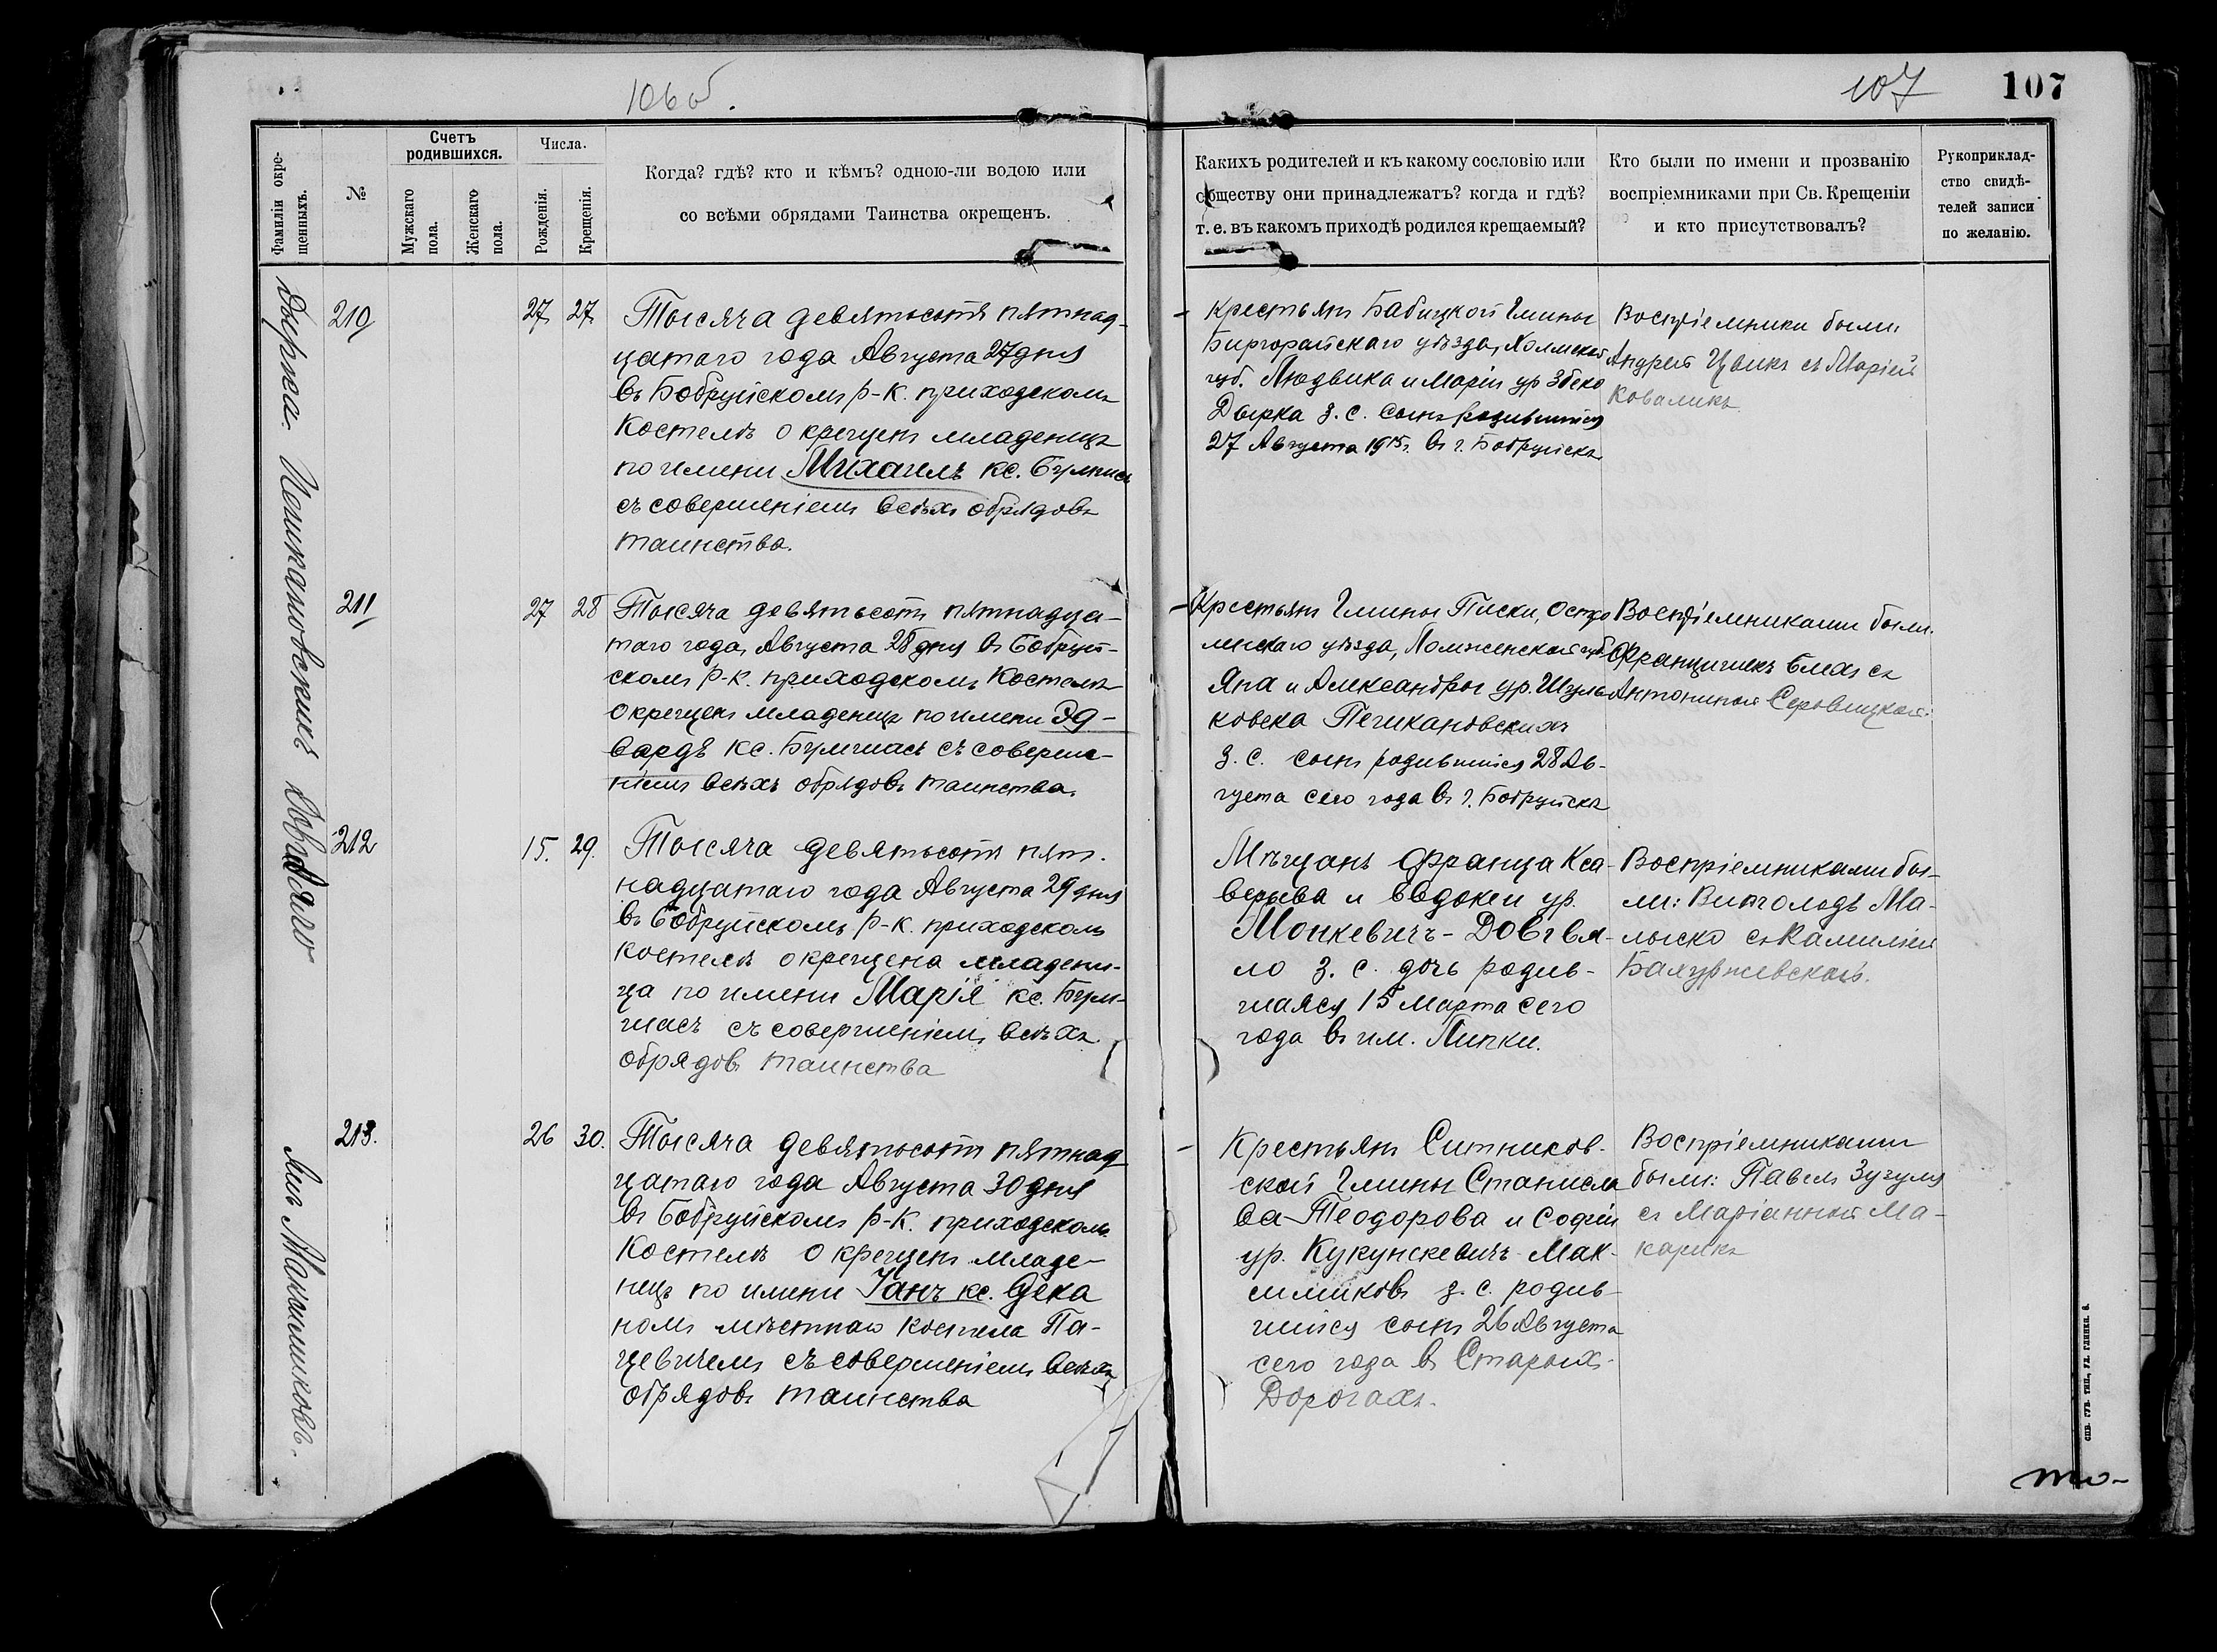 106об.
107
107
Фамиліи окре-
щенныхъ.
№
Счетъ
родившихся.
Мужскаго
пола.
Женскаго
пола.
Числа.
Рожденія.
Крещенія.
Когда? гдѣ? кто и кѣмъ? одною-ли водою или
со всѣми обрядами Таинства окрещенъ.
Какихъ родителей и къ какому сословію или
обществу они принадлежатъ? когда и гдѣ?
т. е. въ какомъ приходѣ родился крещаемый?
Кто были по имени и прозванію
воспріемниками при Св. Крещеніи
и кто присутствовалъ?
Рукоприклад-
ство свидѣ-
телей записи
по желанію.
Дырка.
210
27
27
Тысяча девятьсотъ пятнад-
цатаго года Августа 27 дня
въ Бобруйскомъ р-к. приходскомъ
Костелѣ окрещенъ младенецъ
по имени Михаилъ кс.
съ совершеніемъ всѣхъ обрядовъ
таинства.
Крестьянъ Бабицкой Гмины
уѣзда, Холмской
губ. Людвика и Маріи ур.
Дырка з. с. сынъ родившійся
27 Августа 1915 г. въ г. Бобруйскѣ
Воспріемники были
Андрей Цвикъ съ Маріей
Коваликъ
211
27
28
Тысяча девятьсотъ пятнадца-
таго года, Августа 28 дня въ Бобруй-
скомъ р-к. приходскомъ Костелѣ
окрещенъ младенецъ по имени Эд-
вардъ кс. Булишасъ съ соверше-
ніемъ всѣхъ обрядовъ таинства.
Крестьянъ Гмины Писки, Остро
ленскаго уѣзда, Ломженской губ.
Яна и Александры ур. Шуль
ковска
з. с. сынъ родившійся 28 Ав-
густа сего года въ г. Бобруйскѣ
Воспріемниками были
Францишекъ съ
Антониной
Довгялло
212
15.
29.
Тысяча девятьсотъ пят-
надцатаго года Августа 29 дня
въ Бобруйскомъ р-к. приходскомъ
Костелѣ окрещена младени-
ца по имени Марія кс. Були-
шасъ съ совершеніемъ всѣхъ
обрядовъ таинства
Мѣщанъ Франца Кса-
верьева и Евдокеи ур.
Монкевичъ - Довгвял-
ло з. с. дочь родив-
шаяся 15 Марта сего
года въ им. Липки.
Воспріемниками бы-
ли: Витольдъ Ма-
лыско съ Камиліей
Янъ Максимиковъ.
213.
26
30.
Тысяча девятьсотъ пятнад
цатаго года Августа 30 дня
въ Бобруйскомъ р-к. приходскомъ
Костелѣ окрещенъ младе-
нецъ по имени Іанъ кс. Дека
номъ мѣстнаго костела Па-
цевичемъ съ совершеніемъ всѣхъ
обрядовъ таинства
Крестьянъ Ситников-
ской Гмины Станисла
ва Теодорова и Софіи
ур. Кукунскевичъ Мак-
симиковъ з. с. родив-
шійся сынъ 26 Августа
сего года въ Старыхъ-
Дорогахъ.
Воспріемниками
были: Павелъ Зугуля
съ Маріанной Ма-
карикъ
спб. губ. тип., ул. глинки, 6.